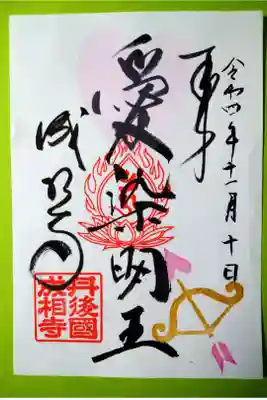 奉拝
令和四年十一月十日
愛染明王
成相寺
丹後國
成相寺